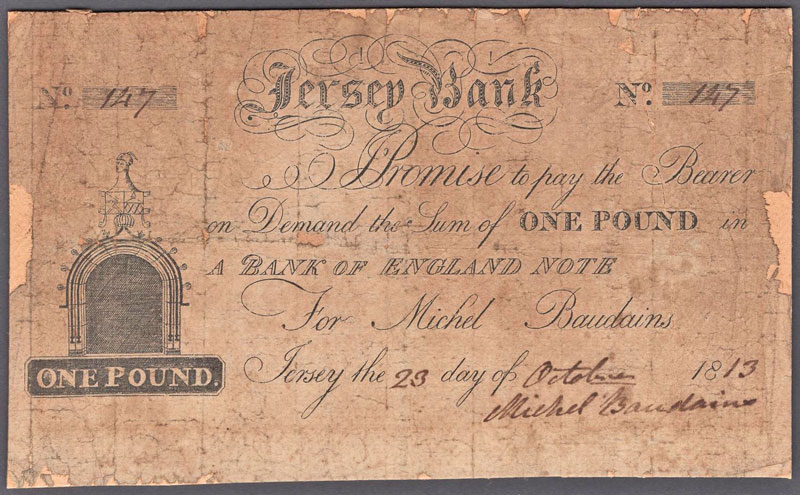 Jersey Bank
No. 147
No. 147
I Promise to pay the Bearer
on Demand the Sum of ONE POUND in
A BANK OF ENGLAND NOTE
For Michel Baudains
Jersey the 23 day of October 1813
Michel Baudains
ONE POUND.